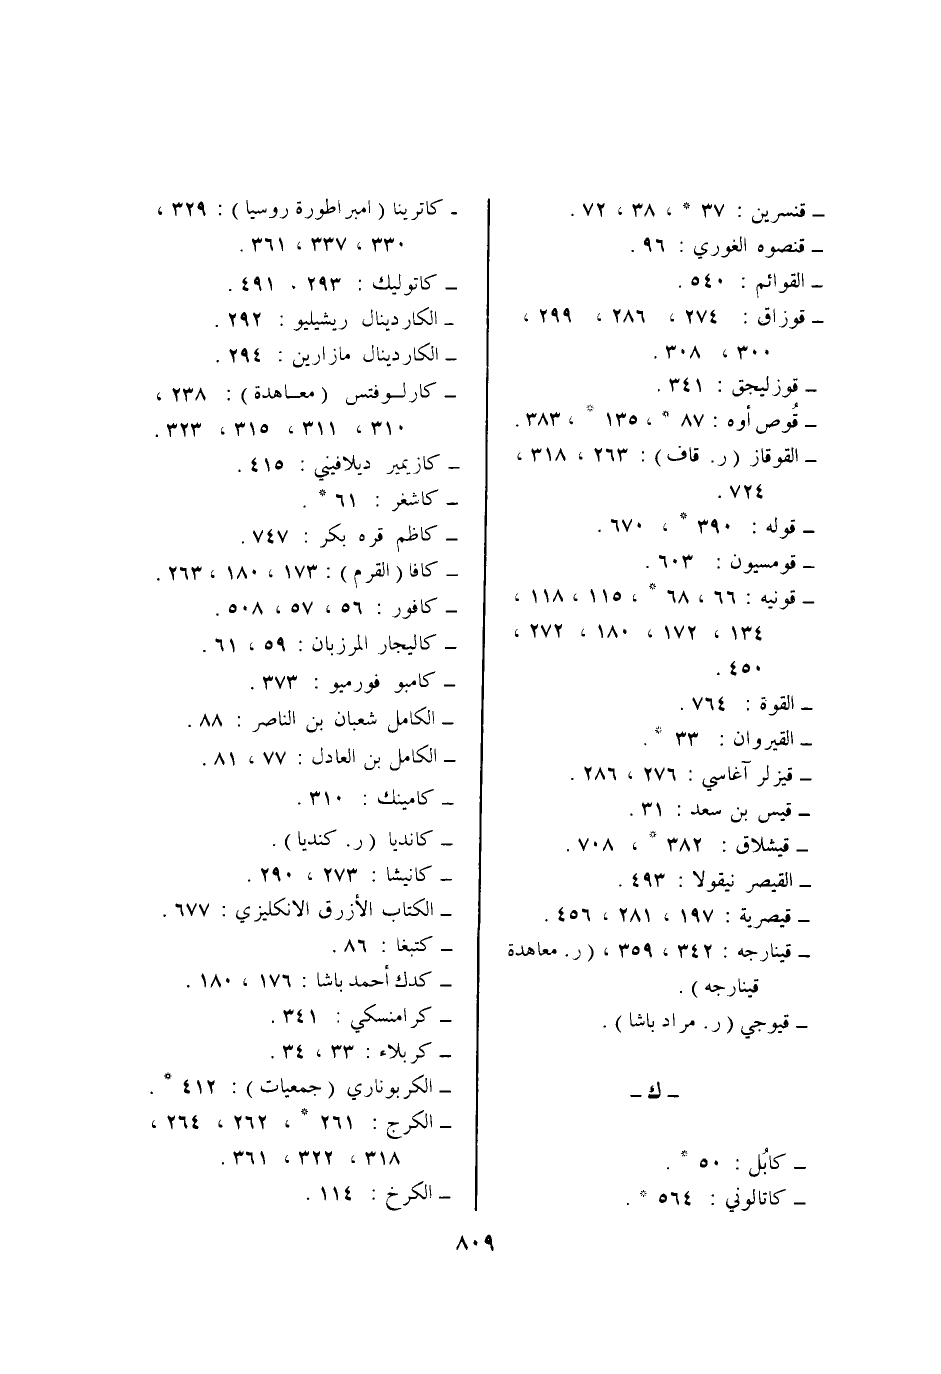 ـ قنسرين : ٣٧ * ، ٣٨ ، ٧٢ .
ـ قنصوه الغوري : ٩٦ .
ـ القوائم : ٥٤٠ .
ـ قوزاق : ٢٧٤ ، ٢٨٦ ، ٢٩٩ ،
٣٠٠ ، ٣٠٨ .
ـ قوزليجق : ٣٤١ .
ـ قُوص أوه : ٨٧ * ، ١٣٥ * ، ٣٨٣ .
ـ القوقاز ( ر. قاف ) : ٢٦٣ ، ٣١٨ ،
٧٢٤ .
ـ قوله : ٣٩٠ * ، ٦٧٠ .
ـ قومسيون : ٦٠٣ .
ـ قونيه : ٦٦ ، ٦٨ * ، ١١٥ ، ١١٨ ،
١٣٤ ، ١٧٢ ، ١٨٠ ، ٢٧٢ ،
٤٥٠ .
ـ القوة : ٧٦٤ .
ـ القيروان : ٣٣ * .
ـ قيزلر آغاسي : ٢٧٦ ، ٢٨٦ .
ـ قيس بن سعد : ٣١ .
ـ قيشلاق : ٣٨٢ * ، ٧٠٨ .
ـ القيصر نيقولا : ٤٩٣ .
ـ قيصرية : ١٩٧ ، ٢٨١ ، ٤٥٦ .
ـ قينارجه : ٣٤٢ ، ٣٥٩ ، ( ر. معاهدة
قينارجه ) .
ـ قيوجي ( ر. مراد باشا ) .
ـ ك ـ
ـ كابُل : ٥٠ * .
ـ كاتالوني : ٥٦٤ * .
ـ كاترينا ( امبراطورة روسيا ) : ٣٢٩ ،
٣٣٠ ، ٣٣٧ ، ٣٦١ .
ـ كاتوليك : ٢٩٣ ، ٤٩١ .
ـ الكاردينال ريشيليو : ٢٩٢ .
ـ الكاردينال مازارين : ٢٩٤ .
ـ كارلـوفتس ( معـاهدة ) : ٢٣٨ ،
٣١٠ ، ٣١١ ، ٣١٥ ، ٣٢٣ .
ـ كازيمير ديلافيني : ٤١٥ .
ـ كاشغر : ٦١ * .
ـ كاظم قره بكر : ٧٤٧ .
ـ كافا ( القرم ) : ١٧٣ ، ١٨٠ ، ٢٦٣ .
ـ كافور : ٥٦ ، ٥٧ ، ٥٠٨ .
ـ كاليجار المرزبان : ٥٩ ، ٦١ .
ـ كامبو فورميو : ٣٧٣ .
ـ الكامل شعبان بن الناصر : ٨٨ .
ـ الكامل بن العادل : ٧٧ ، ٨١ .
ـ كامينك : ٣١٠ .
ـ كانديا ( ر. كنديا ) .
ـ كانيشا : ٢٧٣ ، ٢٩٠ .
ـ الكتاب الأزرق الانكليزي : ٦٧٧ .
ـ كتبغا : ٨٦ .
ـ كدك أحمد باشا : ١٧٦ ، ١٨٠ .
ـ كرامنسكي : ٣٤١ .
ـ كربلاء : ٣٣ ، ٣٤ .
ـ الكربوناري ( جمعيات ) : ٤١٢ * .
ـ الكرج : ٢٦١ * ، ٢٦٢ ، ٢٦٤ ،
٣١٨ ، ٣٢٢ ، ٣٦١ .
ـ الكرخ : ١١٤ .
٨٠٩